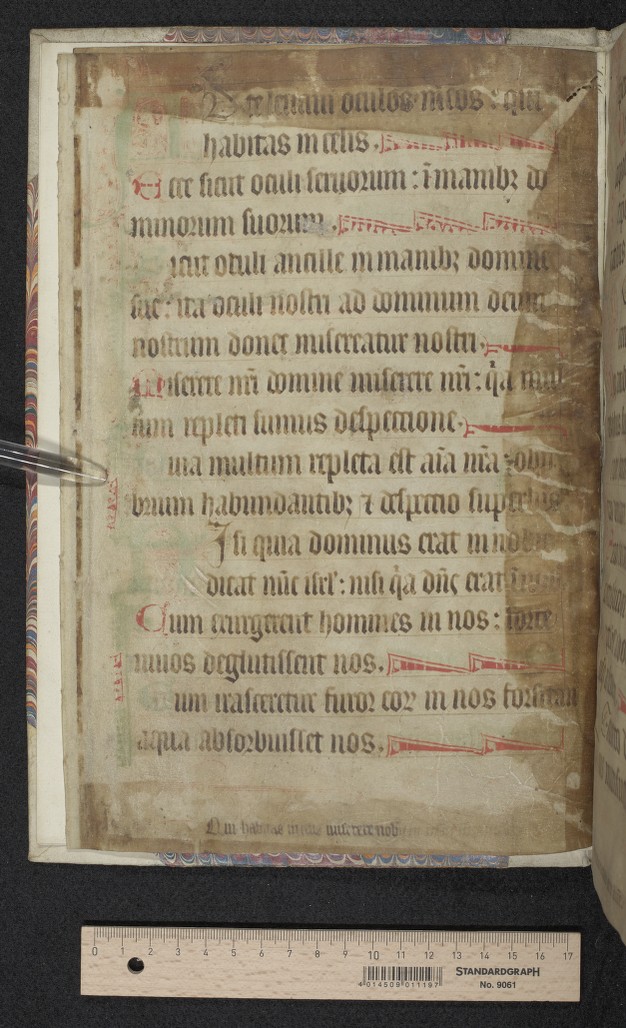 te leuaui oculos meos : qui
habitas in celis .
Ecce sicut oculi seruorum : ī manibꝫ do
minorum suorum .
icut oculi ancille in manibꝫ domine
sue : ita oculi nostri ad dominum deum
nostrum donec misereatur nostri .
Miserere nr̄i domine miserere nr̄i : q̄a mul
tum repleti sumus despectione .
uia multum repleta est aīa nr̄a : obpro
brium habundantibꝫ ⁊ despectio superbis
isi quia dominus erat in nobis
dicat nūc isrl' : nisi q̄a dn̄s erat in
Cum exurgerent homines in nos : forte
uiuos deglutissent nos .
um irasceretur furor eoꝝ in nos forsitan
aqua absorbuisset nos .
Qui habitas in celis miserere nobis
0 1 2 3 4 5 6 7 8 9 10 11 12 13 14 15 16 17
4 014509 011197
STANDARDGRAPH
No. 9061